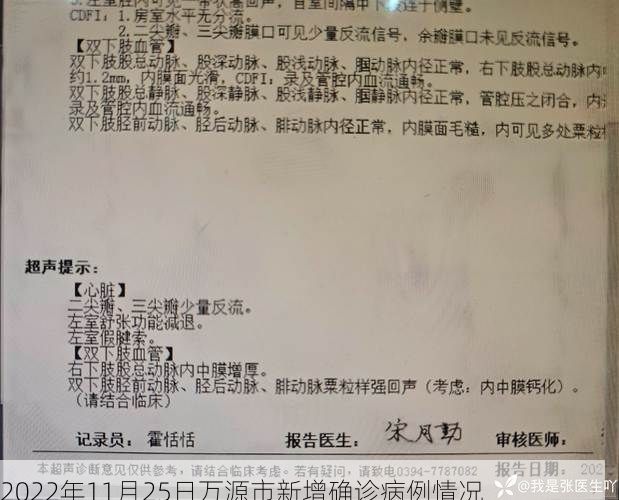 CDFI：1.房室水平无分流。
2.二尖瓣、三尖瓣膜口可见少量反流信号，余瓣膜口未见反流信号。
【双下肢血管】
双下肢股总动脉、股深动脉、股浅动脉、腘动脉内径正常，右下肢股总动脉内
约1.2mm，内膜面光滑，CDFI：录及管腔内血流通畅。
双下肢股总静脉、股深静脉、股浅静脉、腘静脉内径正常，管腔压之闭合，内
录及管腔内血流通畅。
双下肢胫前动脉、胫后动脉、腓动脉内径正常，内膜面毛糙，内可见多处粟粒样
超声提示：
【心脏】
二尖瓣、三尖瓣少量反流。
左室舒张功能减退。
左室假腱索。
【双下肢血管】
右下肢股总动脉内中膜增厚。
双下肢胫前动脉、胫后动脉、腓动脉粟粒样强回声（考虑：内中膜钙化）。
（请结合临床）
记录员：霍恬恬 报告医生：宋月勤 审核医师：
本超声诊断意见仅供参考，请结合临床考虑。若有疑问，请致电0394-7787082 报告日期：202
@我是张医生吖
2022年11月25日万源市新增确诊病例情况